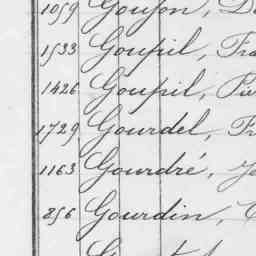 1059 Goujon,
1533 Goupil, Fra
1426 Goupil, Pie
1729 Gourdel, Fr
1163 Gourdré, Je
256 Gourdin,